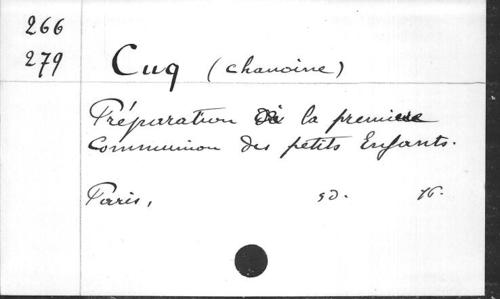 266
279
Cuq (chanoine)
Préparation à la première
Communion des petits Enfants.
Paris, sd. 16.